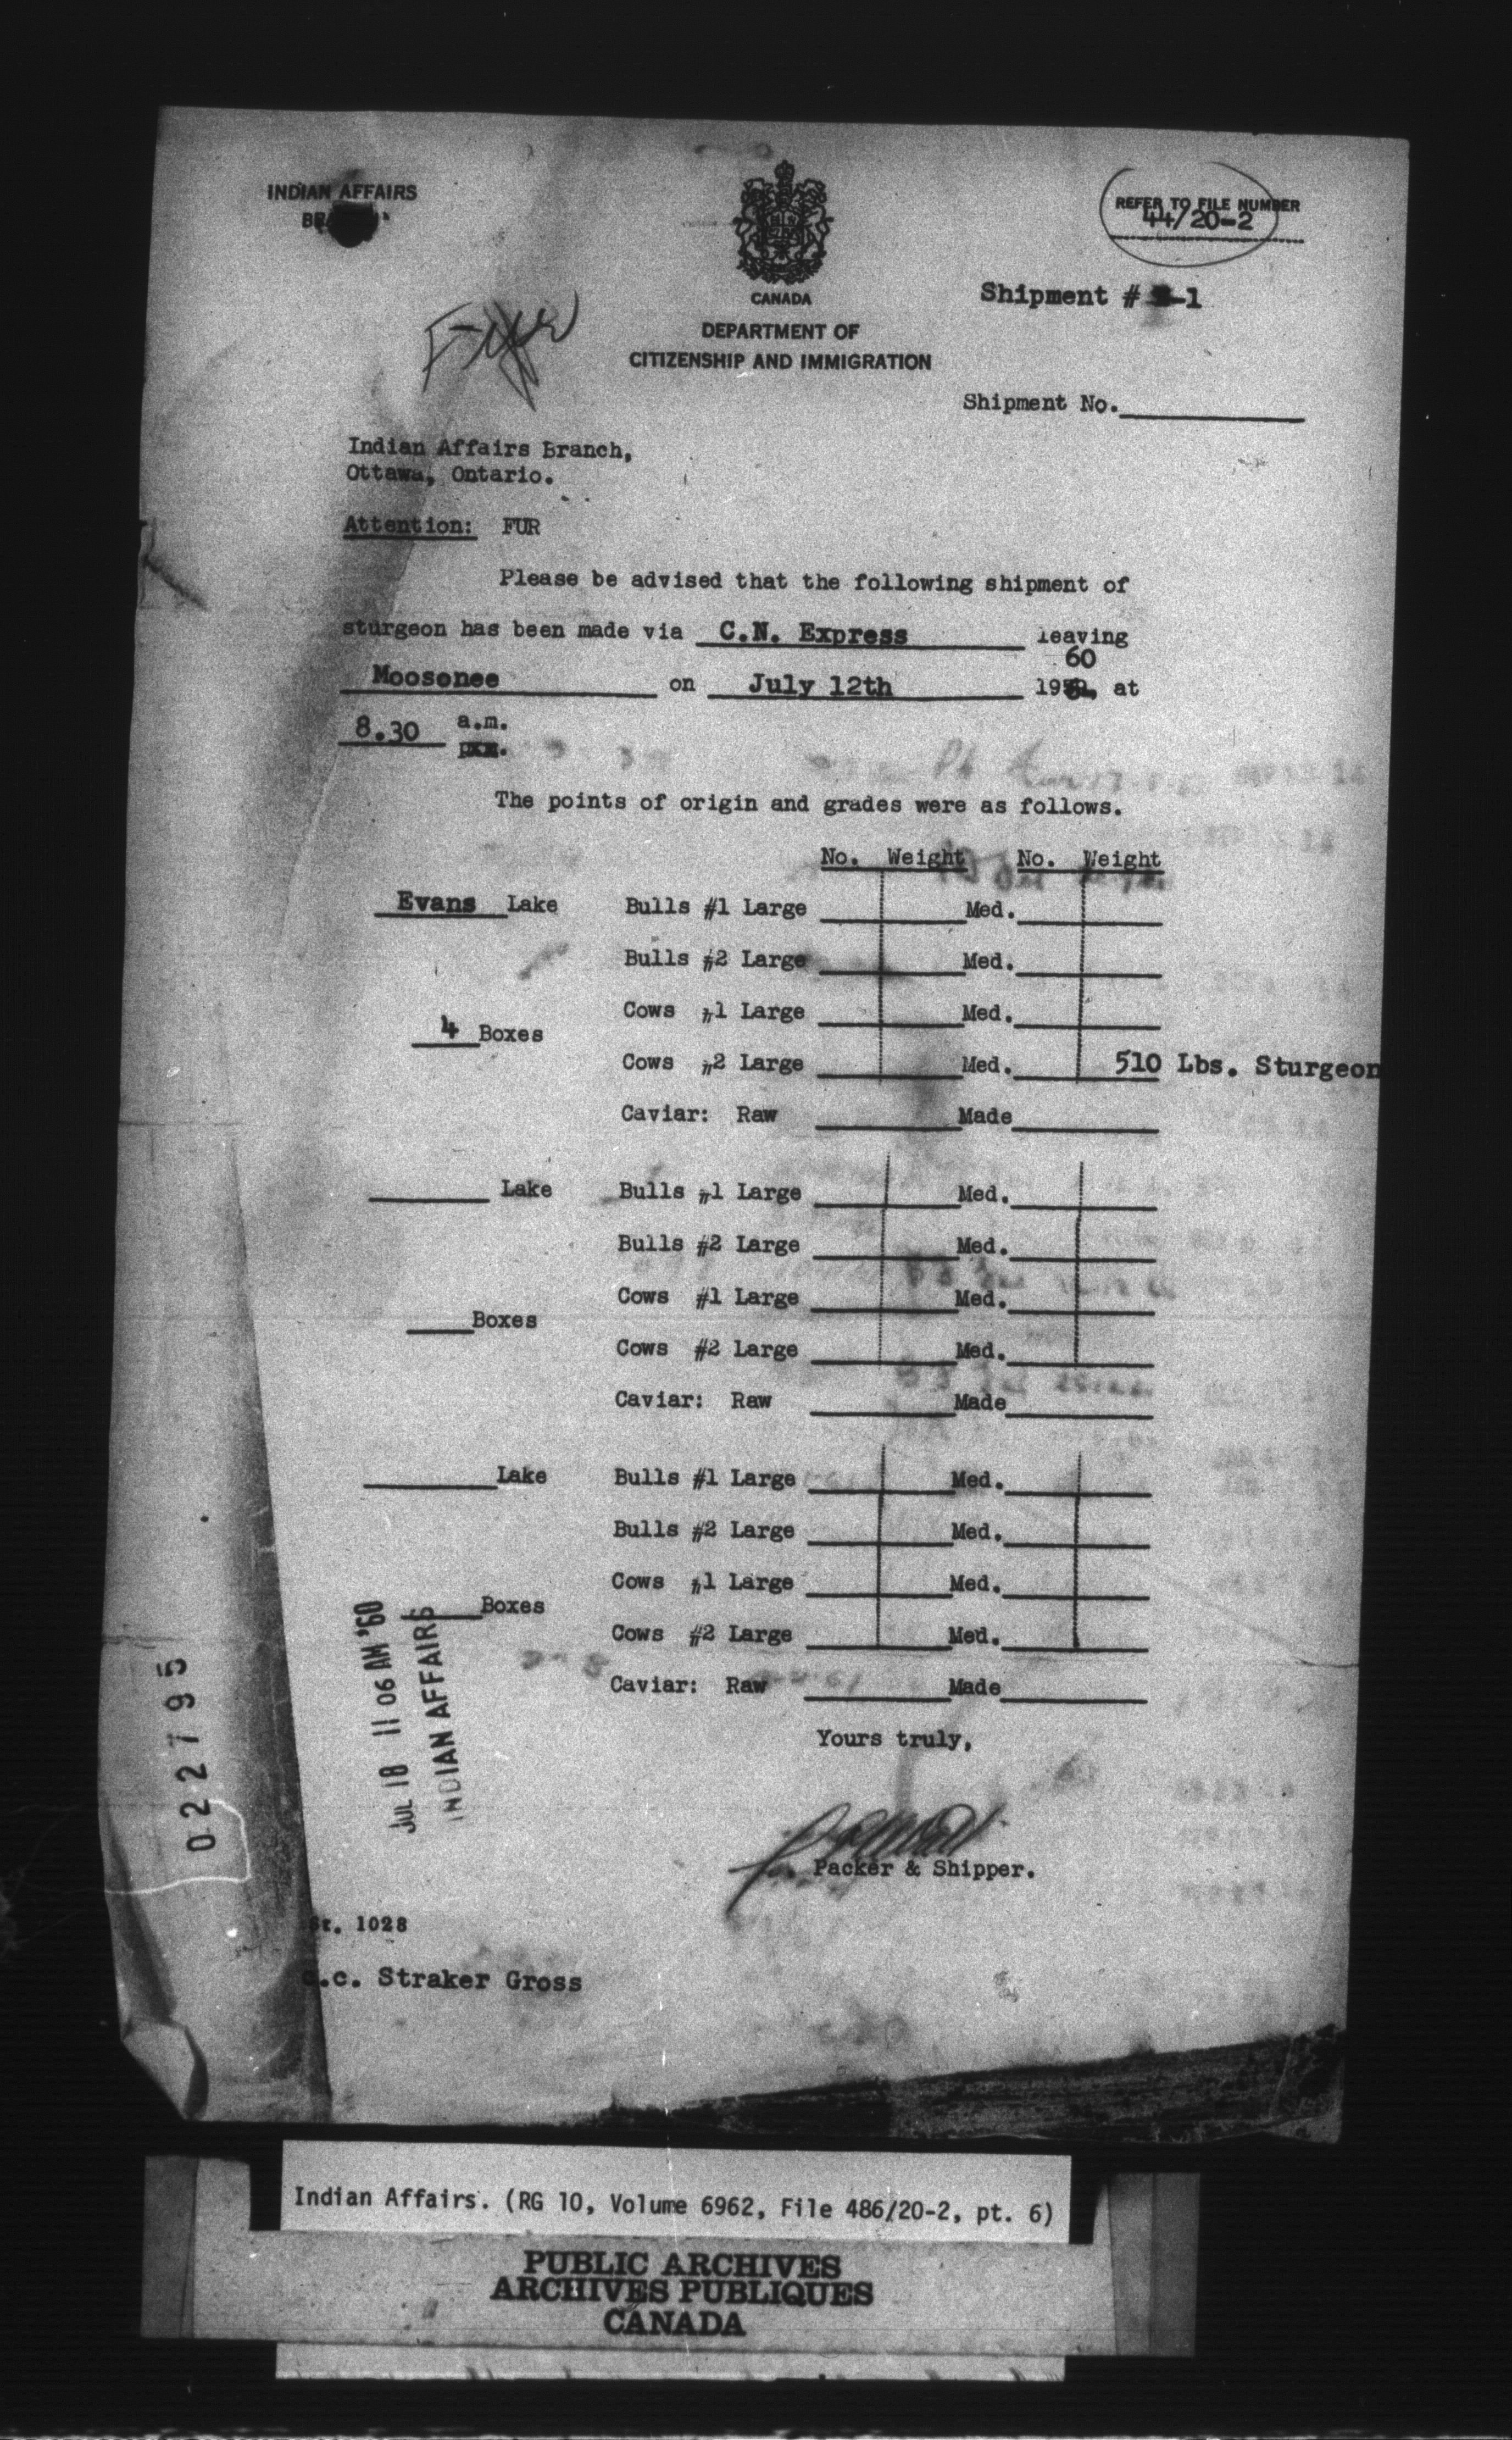 INDIAN AFFAIRS
REFER TO FILE NUMBER
44/20-2
CANADA
Shipment # -1
DEPARTMENT OF
CITIZENSHIP AND IMMIGRATION
Shipment No.
Indian Affairs Branch,
Ottawa, Ontario.
Attention: FUR
Please be advised that the following shipment of
sturgeon has been made via C.N. Express leaving
60
Moosonee on July 12th 195 , at
8.30 a.m.
p.m.
The points of origin and grades were as follows.
No. Weight No. Weight
Evans Lake Bulls #1 Large Med.
Bulls #2 Large Med.
Cows #1 Large Med.
4 Boxes
Cows #2 Large Med. 510 Lbs. Sturgeon
Caviar: Raw Made
Lake Bulls #1 Large Med.
Bulls #2 Large Med.
Cows #1 Large Med.
Boxes
Cows #2 Large Med.
Caviar: Raw Made
Lake Bulls #1 Large Med.
Bulls #2 Large Med.
Cows #1 Large Med.
Boxes
Cows #2 Large Med.
Caviar: Raw Made
JUL 18 11 06 AM '60
INDIAN AFFAIRS
022795
Yours truly,
Packer & Shipper.
St. 1028
c.c. Straker Gross
Indian Affairs. (RG 10, Volume 6962, File 486/20-2, pt. 6)
PUBLIC ARCHIVES
ARCHIVES PUBLIQUES
CANADA